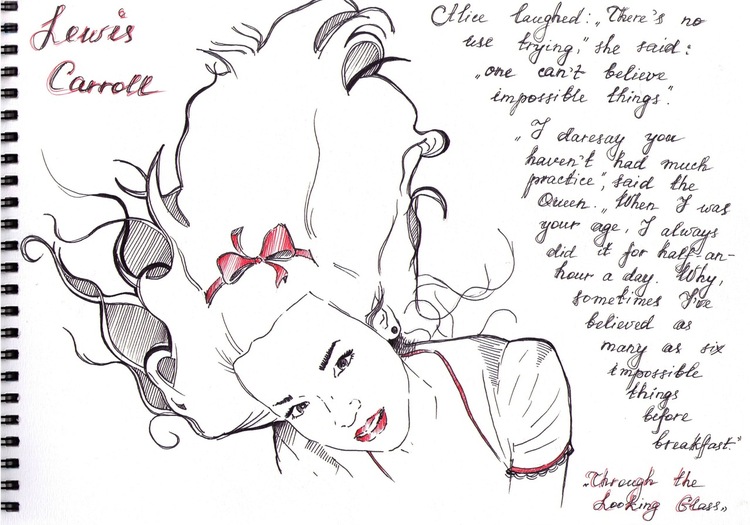 Lewis
Carroll
Alice laughed: „There's no
use trying," she said:
„one can't believe
impossible things".
„I daresay you
haven't had much
practice", said the
Queen. „When I was
your age, I always
did it for half-an-
hour a day. Why,
sometimes I've
believed as
many as six
impossible
things
before
breakfast."
„Through the
Looking Glass„